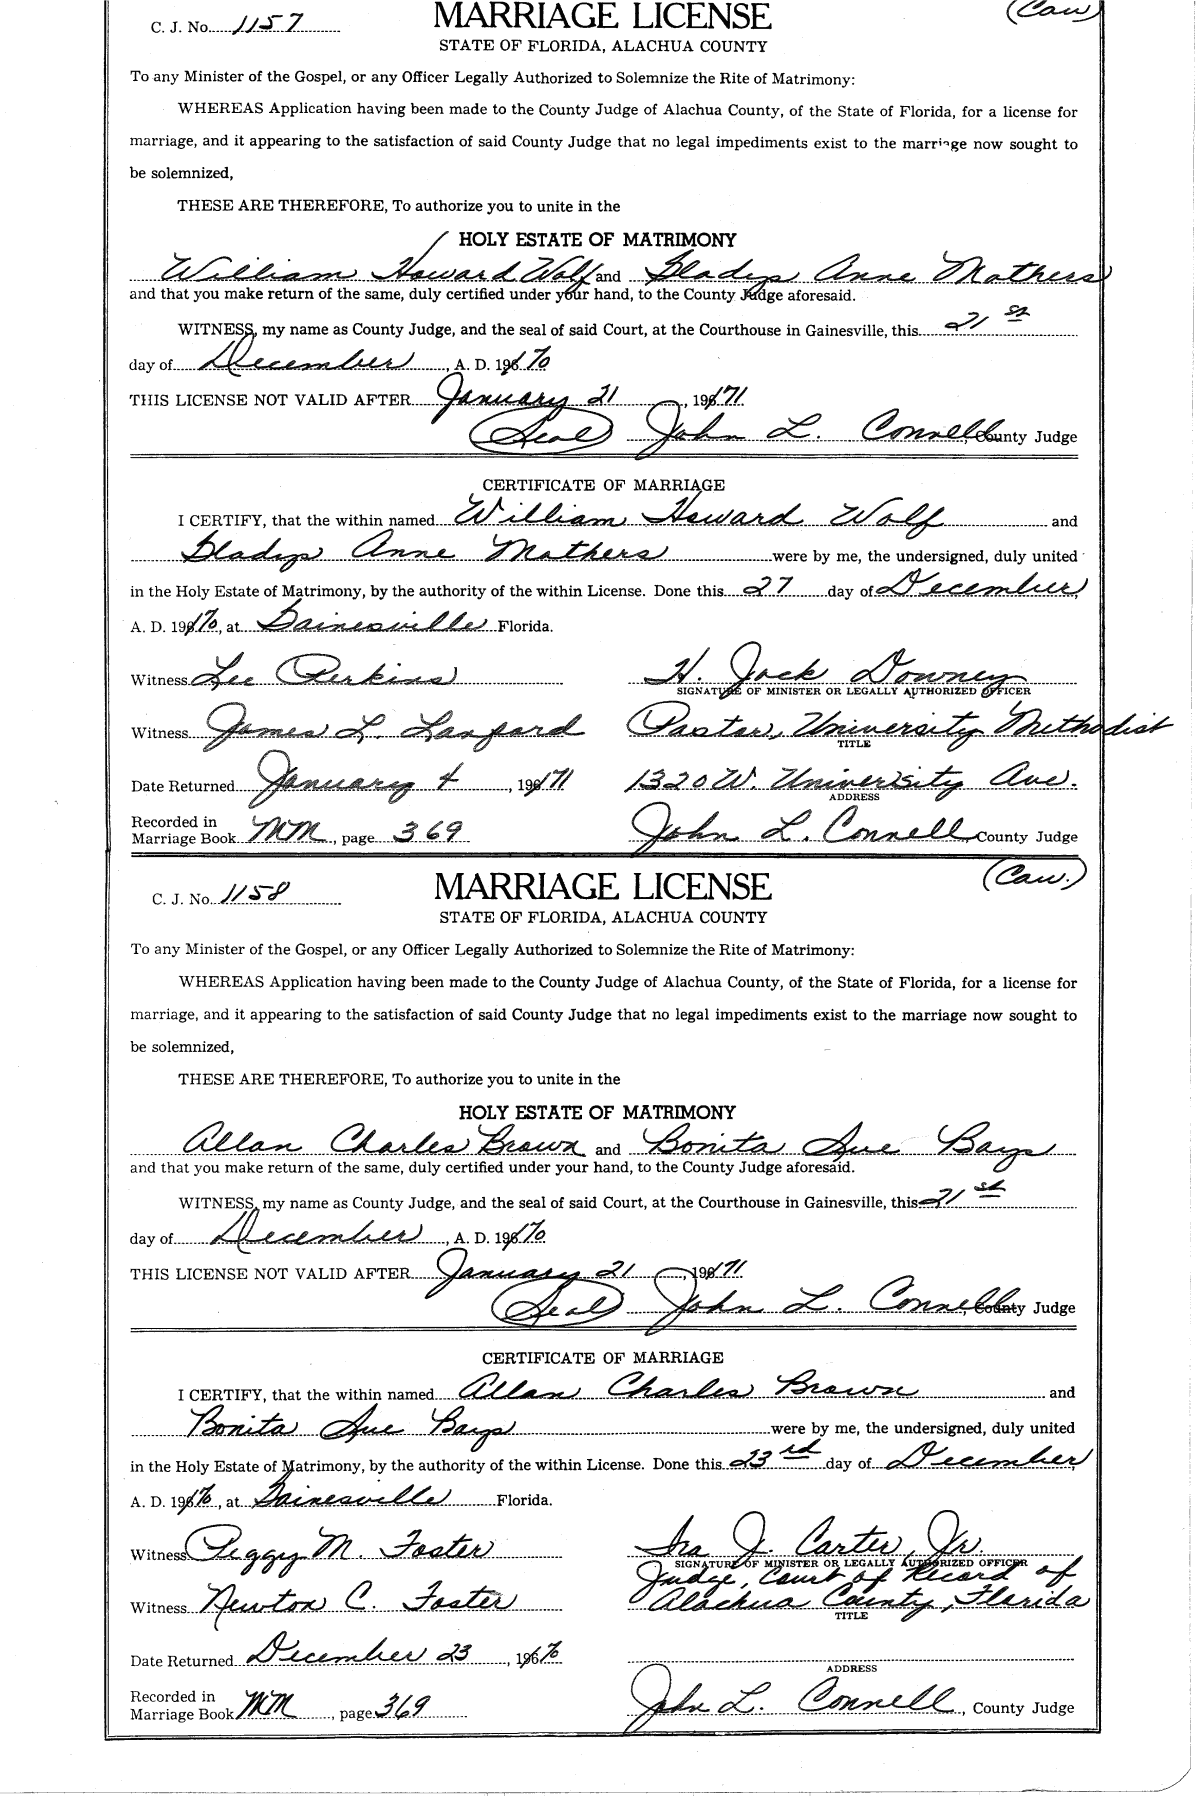 C. J. No. 1157
MARRIAGE LICENSE
(Caw)
STATE OF FLORIDA, ALACHUA COUNTY
To any Minister of the Gospel, or any Officer Legally Authorized to Solemnize the Rite of Matrimony:
WHEREAS Application having been made to the County Judge of Alachua County, of the State of Florida, for a license for
marriage, and it appearing to the satisfaction of said County Judge that no legal impediments exist to the marriage now sought to
be solemnized,
THESE ARE THEREFORE, To authorize you to unite in the
HOLY ESTATE OF MATRIMONY
William Howard Wolf and Gladys Anne Mathers
and that you make return of the same, duly certified under your hand, to the County Judge aforesaid.
WITNESS, my name as County Judge, and the seal of said Court, at the Courthouse in Gainesville, this 21st
day of December, A. D. 1970
THIS LICENSE NOT VALID AFTER January 21, 1971
(Seal) John L. Connell, County Judge
CERTIFICATE OF MARRIAGE
I CERTIFY, that the within named William Howard Wolf and
Gladys Anne Mathers were by me, the undersigned, duly united
in the Holy Estate of Matrimony, by the authority of the within License. Done this 27 day of December,
A. D. 1970, at Gainesville Florida.
Witness Lee Perkins H. Jack Downey
SIGNATURE OF MINISTER OR LEGALLY AUTHORIZED OFFICER
Witness James L. Lanford Pastor, University Methodist
TITLE
Date Returned January 4, 1971 1320 W. University Ave.
ADDRESS
Recorded in
Marriage Book MM, page 369 John L. Connell, County Judge
C. J. No. 1158
MARRIAGE LICENSE
(Caw.)
STATE OF FLORIDA, ALACHUA COUNTY
To any Minister of the Gospel, or any Officer Legally Authorized to Solemnize the Rite of Matrimony:
WHEREAS Application having been made to the County Judge of Alachua County, of the State of Florida, for a license for
marriage, and it appearing to the satisfaction of said County Judge that no legal impediments exist to the marriage now sought to
be solemnized,
THESE ARE THEREFORE, To authorize you to unite in the
HOLY ESTATE OF MATRIMONY
Allan Charles Brown and Bonita Sue Bays
and that you make return of the same, duly certified under your hand, to the County Judge aforesaid.
WITNESS, my name as County Judge, and the seal of said Court, at the Courthouse in Gainesville, this 21st
day of December, A. D. 1970
THIS LICENSE NOT VALID AFTER January 21, 1971
(Seal) John L. Connell, County Judge
CERTIFICATE OF MARRIAGE
I CERTIFY, that the within named Allan Charles Brown and
Bonita Sue Bays were by me, the undersigned, duly united
in the Holy Estate of Matrimony, by the authority of the within License. Done this 23rd day of December,
A. D. 1970, at Gainesville Florida.
Witness Peggy M. Foster Ira J. Carter, Jr.
SIGNATURE OF MINISTER OR LEGALLY AUTHORIZED OFFICER
Judge, Court of Record of
Witness Newton C. Foster Alachua County, Florida
TITLE
Date Returned December 23, 1970
ADDRESS
Recorded in
Marriage Book MM, page 369 John L. Connell, County Judge